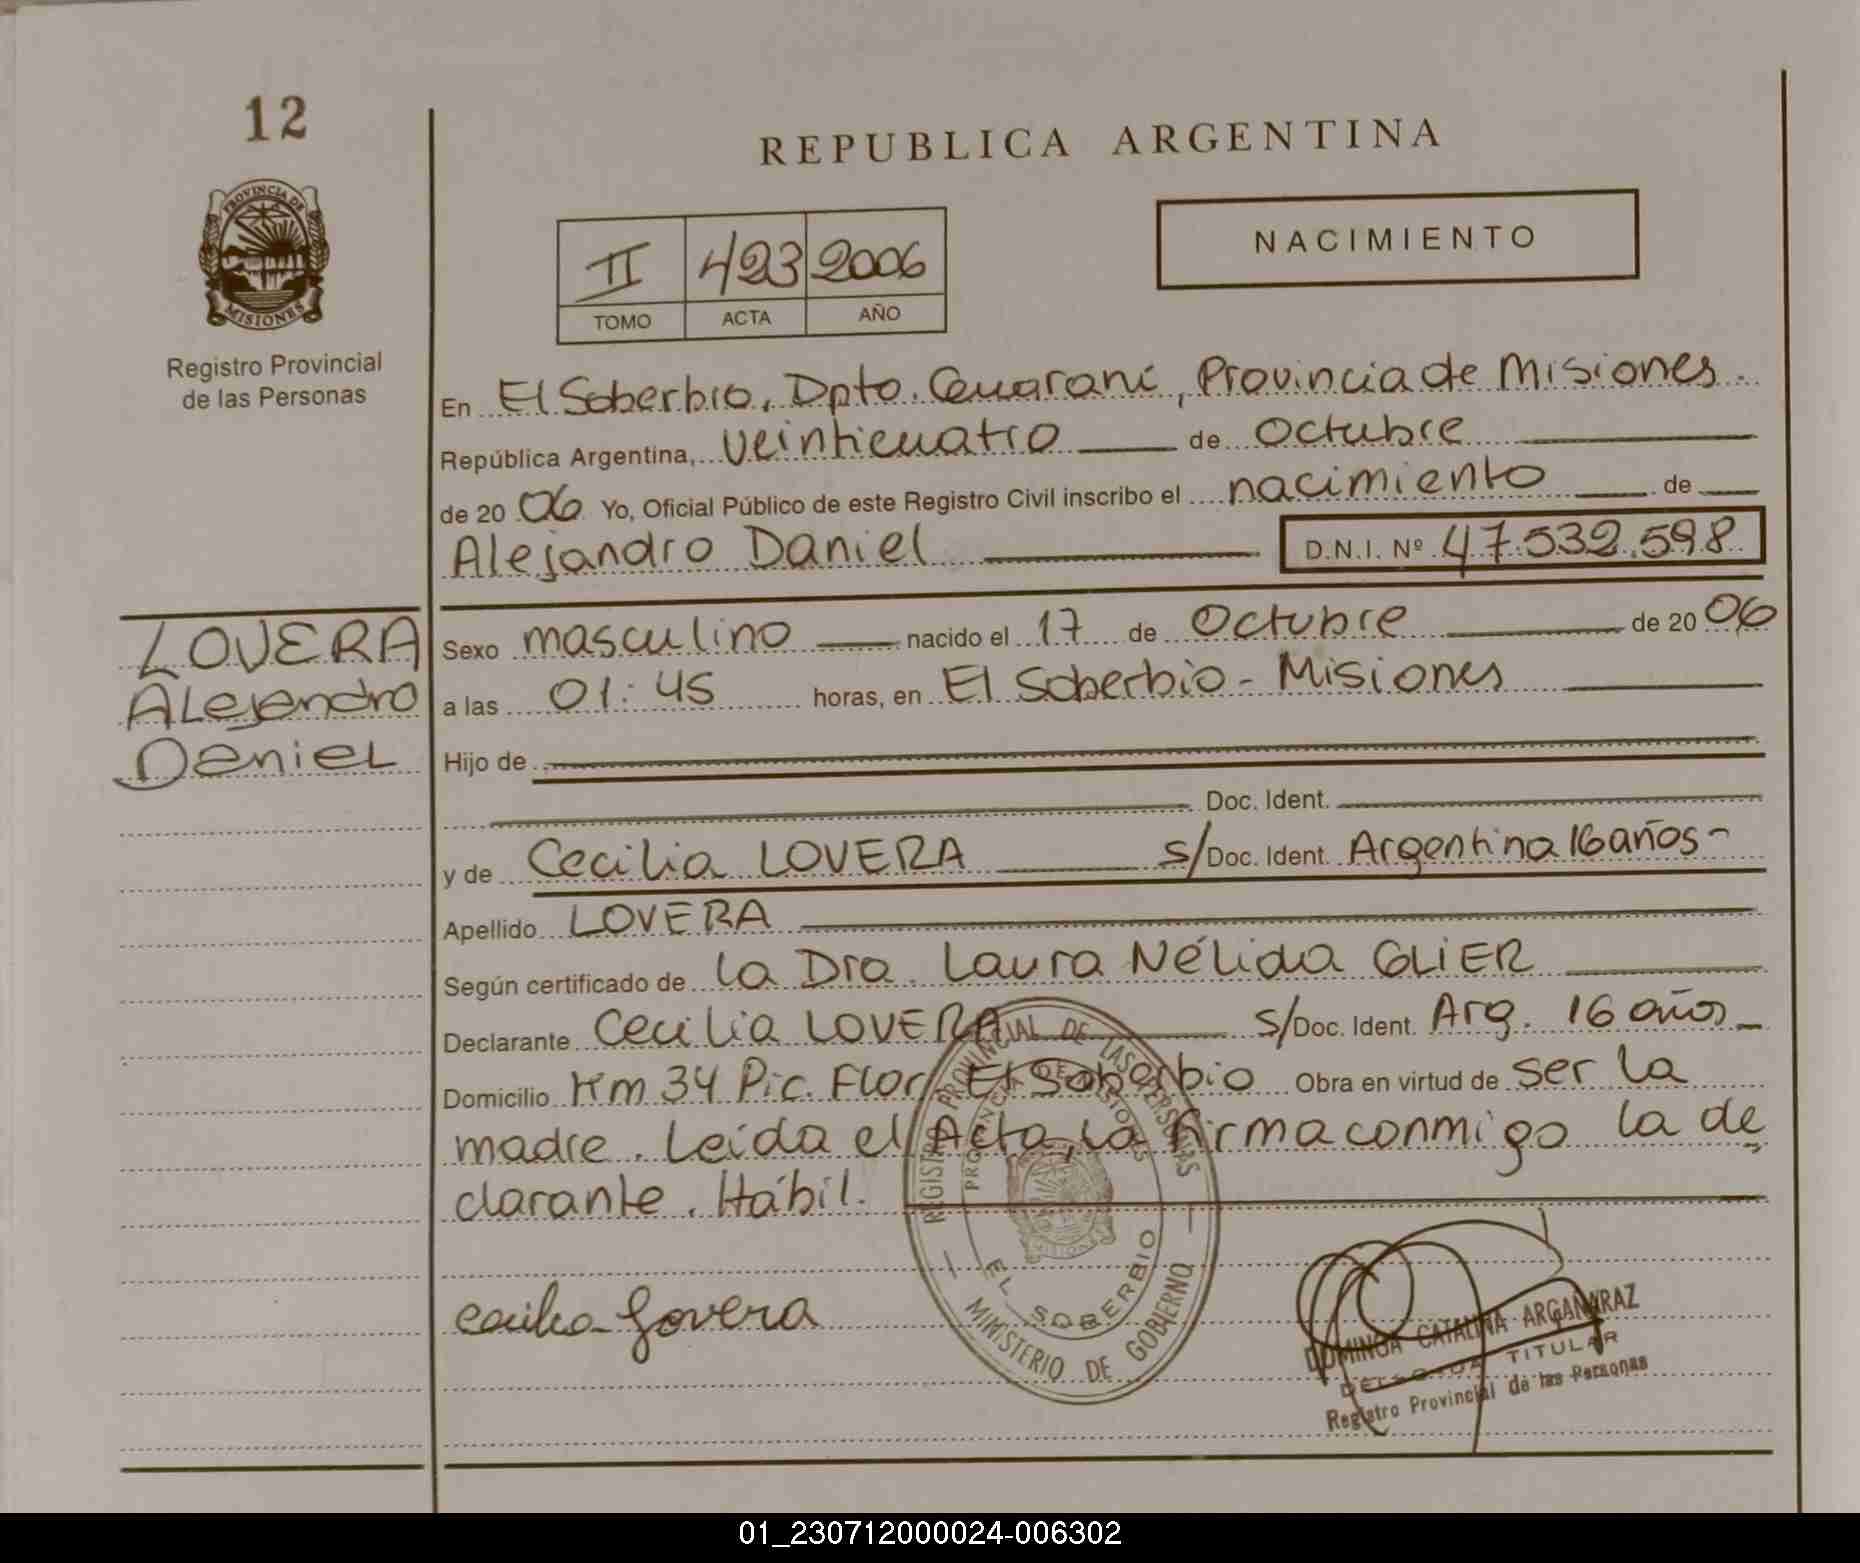 12
PROVINCIA DE
MISIONES
Registro Provincial
de las Personas
REPUBLICA ARGENTINA
II 423 2006
TOMO ACTA AÑO
NACIMIENTO
En El Soberbio, Dpto. Guaraní, Provincia de Misiones.
República Argentina, veinticuatro de Octubre
de 20 06 Yo, Oficial Público de este Registro Civil inscribo el nacimiento de
Alejandro Daniel D.N.I. Nº 47.532.598
LOVERA
Alejandro
Daniel
Sexo masculino nacido el 17 de Octubre de 20 06
a las 01:45 horas, en El Soberbio - Misiones
Hijo de
Doc. Ident.
y de Cecilia LOVERA s/Doc. Ident. Argentina 16 años -
Apellido LOVERA
Según certificado de la Dra. Laura Nélida GLIER
Declarante Cecilia LOVERA s/Doc. Ident. Arg. 16 años
Domicilio Km 34 Pic. Flor/ El Soberbio Obra en virtud de ser la
madre. Leída el Acta, la firma conmigo la de
clarante. Hábil.
REGISTRO PROVINCIAL DE LAS PERSONAS
PROVINCIA DE MISIONES
MISIONES
EL SOBERBIO
MINISTERIO DE GOBIERNO
Cecilia Lovera
DOMINGA CATALINA ARGAÑARAZ
DELEGADA TITULAR
Registro Provincial de las Personas
01_230712000024-006302